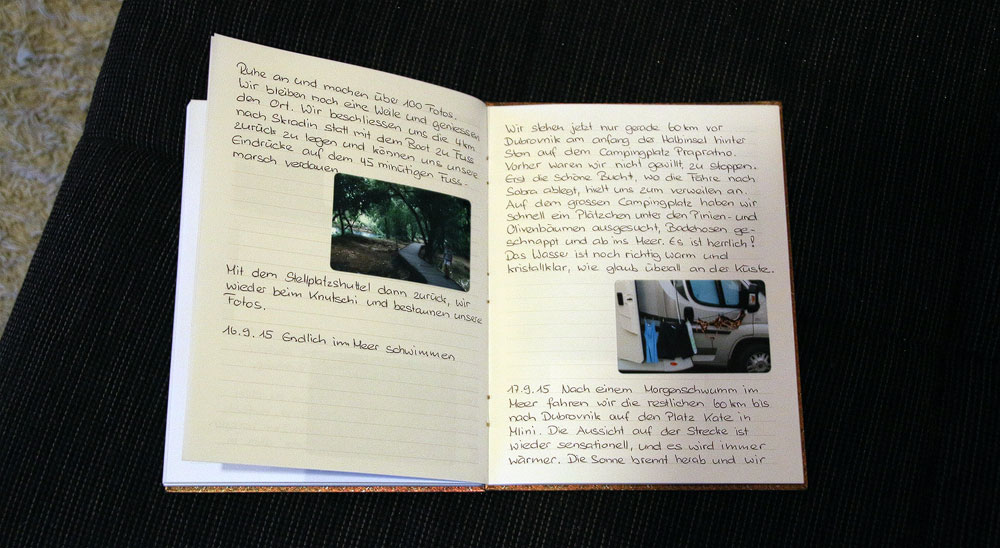 Ruhe an und machen über 100 Fotos.
Wir bleiben noch eine Weile und geniessen
den Ort. Wir beschliessen uns die 4 km
nach Skradin statt mit dem Boot zu Fuss
zurück zu legen und können uns unsere
Eindrücke auf dem 45 minütigen Fuss-
marsch verdauen.
Mit dem Stellplatzshuttel dann zurück, wir
wieder beim Knutschi und bestaunen unsere
Fotos.
16.9.15 Endlich im Meer schwimmen
Wir stehen jetzt nur gerade 60 km vor
Dubrovnik am anfang der Halbinsel hinter
Ston auf dem Campingplatz Prapratno.
Vorher waren wir nicht gewillt, zu stoppen.
Erst die schöne Bucht, wo die Fähre nach
Sobra ablegt, hielt uns zum verweilen an.
Auf dem grossen Campingplatz haben wir
schnell ein Plätzchen unter den Pinien- und
Olivenbäumen ausgesucht, Badehosen ge-
schnappt und ab ins Meer. Es ist herrlich!
Das Wasser ist noch richtig warm und
kristallklar, wie glaub überall an der Küste.
17.9.15 Nach einem Morgenschwumm im
Meer fahren wir die restlichen 60 km bis
nach Dubrovnik auf den Platz Kate in
Mlini. Die Aussicht auf der Strecke ist
wieder sensationell, und es wird immer
wärmer. Die Sonne brennt herab und wir